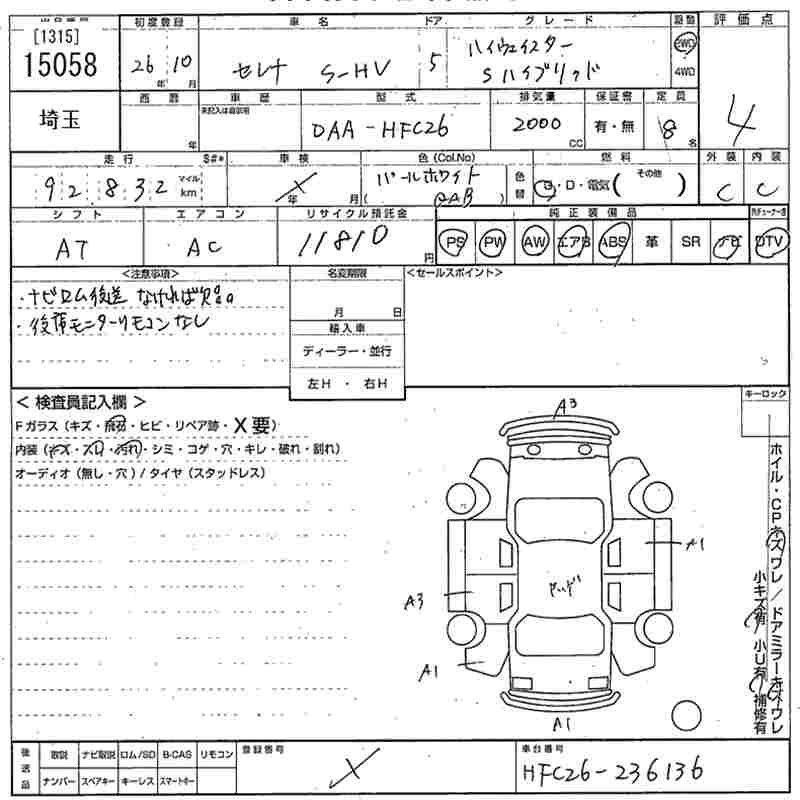 [1315]
15058
埼玉
初度登録
26年 10月
車名 ドア グレード
セレナ S-HV 5 ハイウェイスター
Sハイブリッド
駆動
2WD
4WD
評価点
4
西暦
年
車歴
未記入は自家用
型式
DAA-HFC26
排気量
2000 CC
保証書
有・無
定員
8名
走行 S#*
92,832 マイル km
車検
年 月
色(Col.No)
パールホワイト
(QAB)
色替
燃料
G・D・電気( その他 )
外装 内装
C C
シフト
AT
エアコン
AC
リサイクル預託金
11810円
純正装備品
PS PW AW エアB ABS 革 SR ナビ DTV
<注意事項>
・ナビロム後送 なければ欠品。
・後席モニターリモコンなし
名変期限
月 日
輸入車
ディーラー・並行
左H ・ 右H
<セールスポイント>
<検査員記入欄>
Fガラス(キズ・飛石・ヒビ・リペア跡・X要)
内装(キズ・スレ・汚れ・シミ・コゲ・穴・キレ・破れ・割れ)
オーディオ(無し・穴)/タイヤ(スタッドレス)
キーロック
A3
A1
A3
A1
A1
ホイル・CPキズワレ/ドアミラーキズワレ
小キズ有 小U有 補修有
後送品
取説 ナビ取説 ロム/SD B-CAS リモコン
ナンバー スペアキー キーレス スマートキー
登録番号
車台番号
HFC26-236136